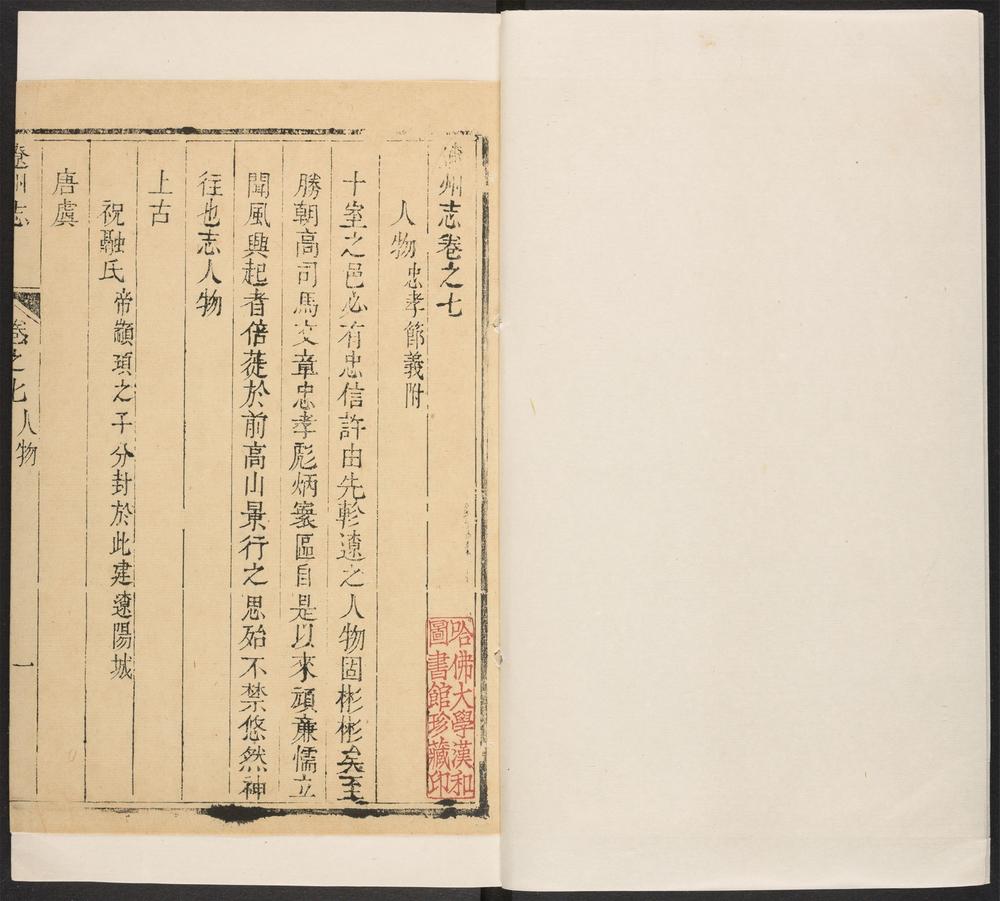 遼州志卷之七
人物 忠孝節義附
十室之邑必有忠信許由先軫遼之人物固彬彬矣至
勝朝髙司馬文章忠孝彪炳寰區自是以來頑亷懦立
聞風興起者倍蓰於前髙山景行之思殆不禁悠然神
往也志人物
上古
祝融氏 帝顓頊之子分封於此建遼陽城
唐虞
遼州志 卷之七 人物 一
哈佛大學漢和
圖書館珍藏印